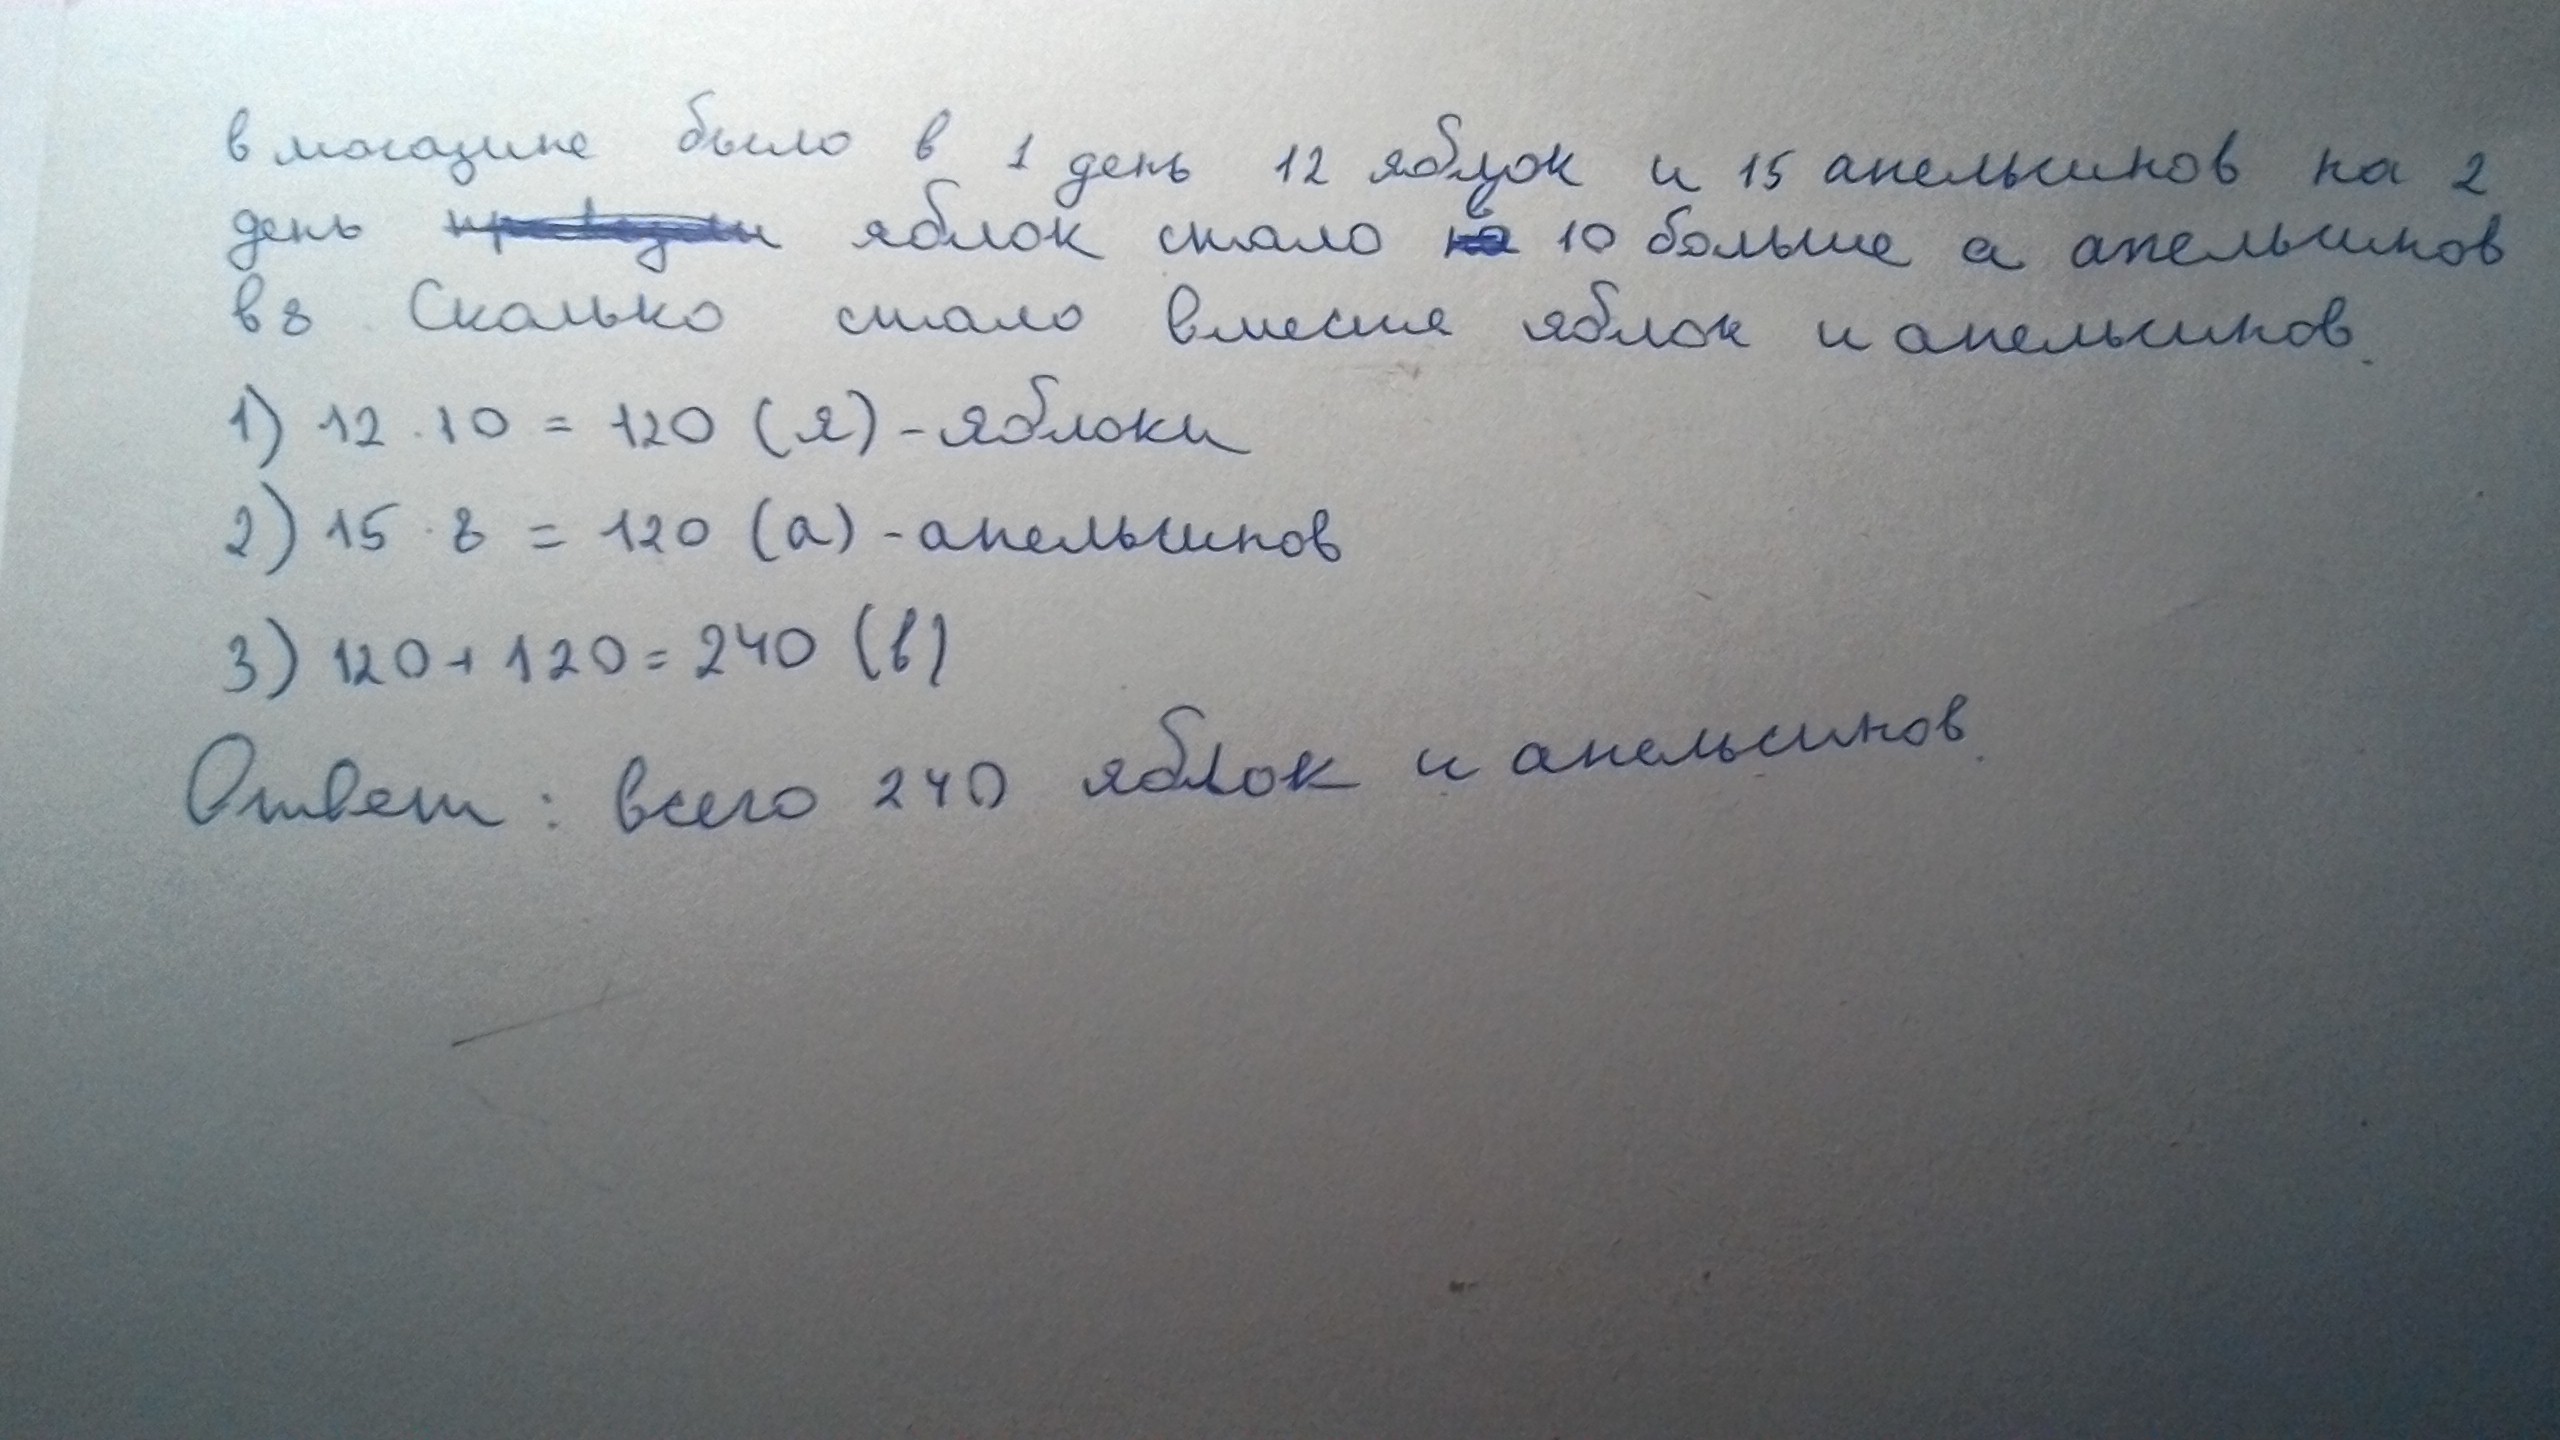 в магазине было в 1 день 12 яблок и 15 апельсинов на 2
день яблок стало в 10 больше а апельсинов
в 8. Сколько стало вместе яблок и апельсинов.
1) 12 · 10 = 120 (я) - яблоки
2) 15 · 8 = 120 (а) - апельсинов
3) 120 + 120 = 240 (в)
Ответ: всего 240 яблок и апельсинов.